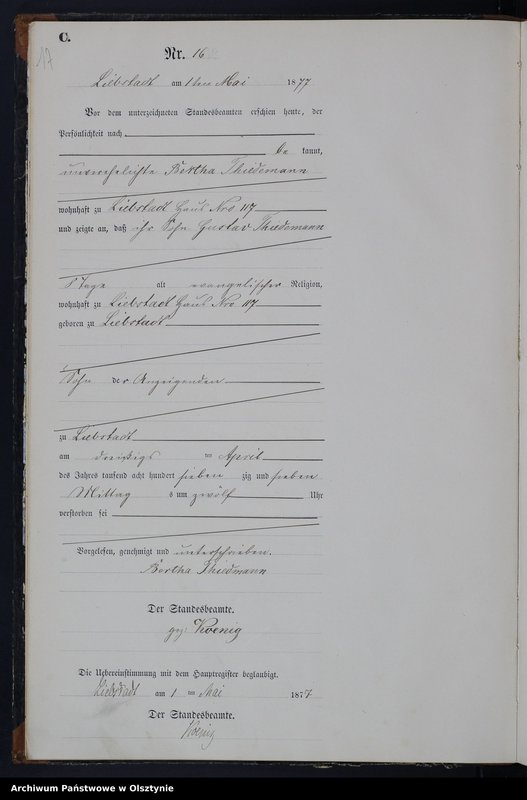 C.
17
Nr. 16
Liebstadt am 1ten Mai 1877
Vor dem unterzeichneten Standesbeamten erschien heute, der
Persönlichkeit nach
be kannt,
unverehelichte Bertha Thiedemann
wohnhaft zu Liebstadt Haus Nro 117
und zeigte an, daß ihr Sohn Gustav Thiedemann
8 Tage alt evangelischer Religion,
wohnhaft zu Liebstadt Haus Nro 117
geboren zu Liebstadt
Sohn der Anzeigenden
zu Liebstadt
am dreißigs ten April
des Jahres tausend acht hundert sieben zig und sieben
Mittag s um zwölf Uhr
verstorben sei
Vorgelesen, genehmigt und unterschrieben.
Bertha Thiedmann
Der Standesbeamte.
gez. Koenig
Die Uebereinstimmung mit dem Hauptregister beglaubigt.
Liebstadt am 1 ten Mai 1877
Der Standesbeamte.
Koenig
Archiwum Państwowe w Olsztynie